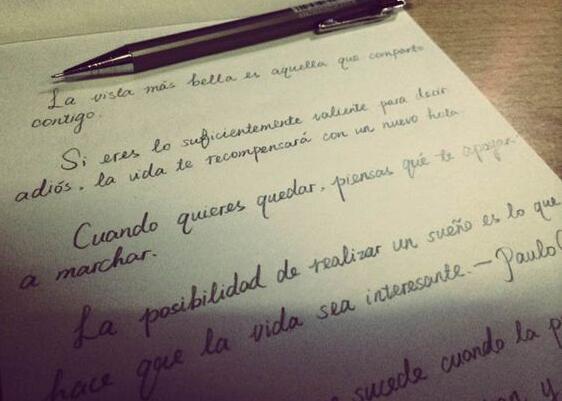 La vista más bella es aquella que comparto
contigo.
Si eres lo suficientemente valiente para decir
adiós, la vida te recompensará con un nuevo hola
Cuando quieres quedar, piensas qué te
a marchar.
La posibilidad de realizar un sueño es lo que
hace que la vida sea interesante. — Paulo
sucede cuando la
y